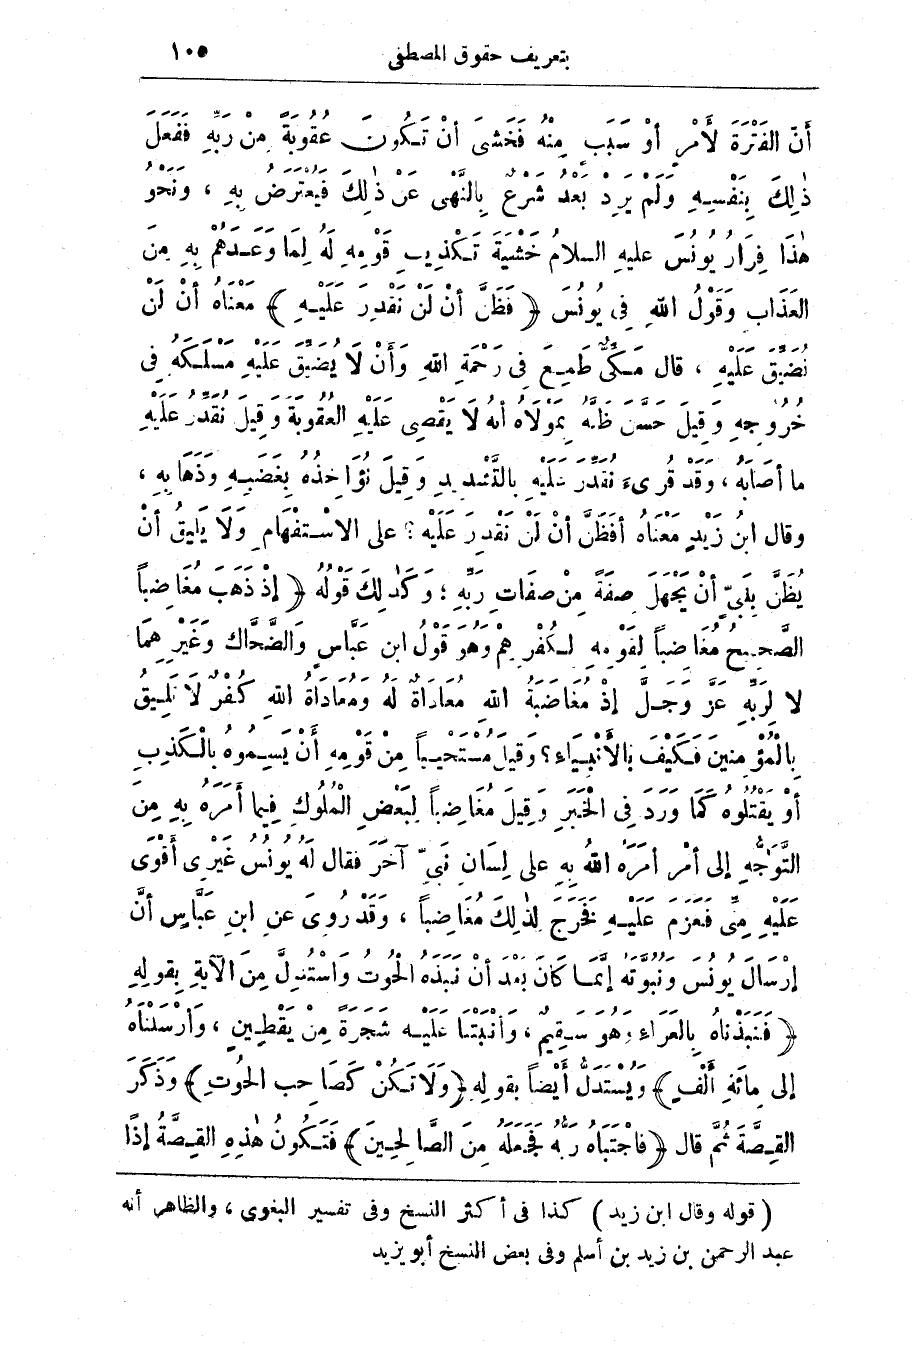 بتعريف حقوق المصطفى ١٠٥
أَنَّ الفَتْرَةَ لأَمْرٍ أَوْ سَبَبٍ مِنْهُ فَخَشِىَ أنْ تَكُونَ عُقُوبَةً مِنْ رَبِّهِ فَفَعَلَ
ذٰلِكَ بِنَفْسِهِ وَلَمْ يَرِدْ بَعْدُ شَرْعٌ بِالنَّهْىِ عَنْ ذٰلِكَ فَيُعْتَرَضُ بِهِ ، وَنَحْوُ
هٰذَا فِرَارُ يُونُسَ عليهِ السلامُ خَشْيَةَ تَكْذِيبِ قَوْمِهِ لَهُ لِمَا وَعَدَهُمْ بِهِ مِنَ
العَذَابِ وَقَوْلُ اللهِ فِى يُونُسَ ﴿ فَظَنَّ أنْ لَنْ نَقْدِرَ عَلَيْهِ ﴾ مَعْنَاهُ أنْ لَنْ
نُضَيِّقَ عَلَيْهِ ، قال مَكِّىٌّ طَمِعَ فِى رَحْمَةِ اللهِ وَأَنْ لَا يُضَيِّقَ عَلَيْهِ مَسْلَكَهُ فِى
خُرُوجِهِ وَقِيلَ حَسَّنَ ظَنَّهُ بِمَوْلَاهُ أنهُ لَا يَقْضِى عَلَيْهِ العُقُوبَةَ وَقِيلَ نُقَدِّرُ عَلَيْهِ
ما أصَابَهُ ، وَقَدْ قُرِىءَ نُقَدِّرَ عَلَيْهِ بالتَّشْدِيدِ وَقِيلَ نُؤَاخِذُهُ بِغَضَبِهِ وَذَهَابِهِ ،
وقال ابنُ زَيْدٍ مَعْنَاهُ أفَظَنَّ أنْ لَنْ نَقْدِرَ عَلَيْهِ ؟ على الاسْتِفْهَامِ وَلَا يَلِيقُ أنْ
يُظَنَّ بِنَبِىٍّ أنْ يَجْهَلَ صِفَةً مِنْ صِفَاتِ رَبِّهِ ؛ وَكَذٰلِكَ قَوْلُهُ ﴿ إذْ ذَهَبَ مُغَاضِباً
الصَّحِيحُ مُغَاضِباً لِقَوْمِهِ لِكُفْرِهِمْ وَهُوَ قَوْلُ ابن عَبَّاسٍ وَالضَّحَّاك وَغَيْرِهِمَا
لا لِرَبِّهِ عَزَّ وَجَلَّ إذْ مُغَاضَبَةُ اللهِ مُعَادَاةٌ لَهُ وَمُعَادَاةُ اللهِ كُفْرٌ لَا تَلِيقُ
بِالْمُؤْمِنِينَ فَكَيْفَ بالأَنْبِيَاءِ ؟ وَقِيلَ مُسْتَحْيِياً مِنْ قَوْمِهِ أَنْ يَسِمُوهُ بِالْكَذِبِ
أوْ يَقْتُلُوهُ كَمَا وَرَدَ فِى الْخَبَرِ وَقِيلَ مُغَاضِباً لِبَعْضِ الْمُلُوكِ فِيما أَمَرَهُ بِهِ مِنَ
التَّوَجُّهِ إلى أَمْرٍ أَمَرَهُ اللهُ بِهِ على لِسَانِ نَبِىٍّ آخَرَ فقال لَهُ يُونُسُ غَيْرِى أَقْوَى
عَلَيْهِ مِنِّى فَعَزَمَ عَلَيْهِ فَخَرَجَ لِذٰلِكَ مُغَاضِباً ، وَقَدْ رُوِىَ عن ابنِ عَبَّاسٍ أنَّ
إرْسَالَ يُونُسَ وَنُبُوَّتَهُ إنَّمَا كانَ بَعْدَ أنْ نَبَذَهُ الْحُوتُ وَاسْتُدِلَّ مِنَ الآيَةِ بِقولِهِ
﴿ فَنَبَذْنَاهُ بِالعَرَاءِ وَهُوَ سَقِيمٌ ، وَأَنْبَتْنَا عَلَيْهِ شَجَرَةً مِنْ يَقْطِينٍ ، وَأَرْسَلْنَاهُ
إلى مِائَةِ أَلْفٍ ﴾ وَيُسْتَدَلُّ أَيْضاً بقولِهِ ﴿ وَلَا تَكُنْ كَصَاحِبِ الحُوتِ ﴾ وَذَكَرَ
القِصَّةَ ثُمَّ قال ﴿ فَاجْتَبَاهُ رَبُّهُ فَجَعَلَهُ مِنَ الصَّالِحِينَ ﴾ فَتَكُونُ هٰذِهِ القِصَّةُ إذًا
( قوله وقال ابن زيد ) كذا فى أكثر النسخ وفى تفسير البغوى ، والظاهر أنه
عبد الرحمن بن زيد بن أسلم وفى بعض النسخ أبو يزيد